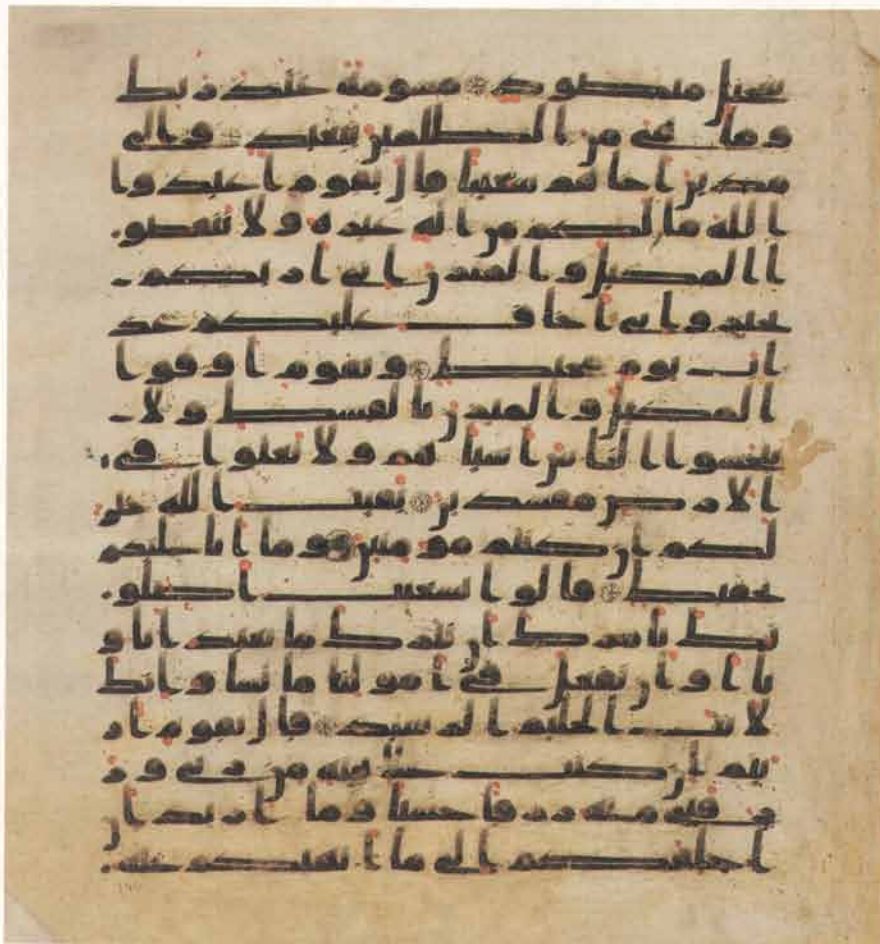 سجيل منضود مسومة عند ربك
وما هي من الظلمين ببعيد والى
مدين اخاهم شعيبا قال يقوم اعبدوا
الله ما لكم من اله غيره ولا تنقصو
ا المكيل والميزن اني اريكم
بخير واني اخاف عليكم عذ
اب يوم محيط ويقوم اوفوا
المكيل والميزن بالقسط ولا
تبخسوا الناس اشياهم ولا تعثوا في
الارض مفسدين بقيت الله خير
لكم ان كنتم مومنين وما انا عليكم
بحفيظ قالوا يشعيب اصلو
تك تامرك ان نترك ما يعبد اباو
نا او ان نفعل في امولنا ما نشا وانك
لانت الحليم الرشيد قال يقوم ار
يتم ان كنت على بينة من ربي ور
زقني منه رزقا حسنا وما اريد ان
اخلفكم الى ما انهيكم عنه